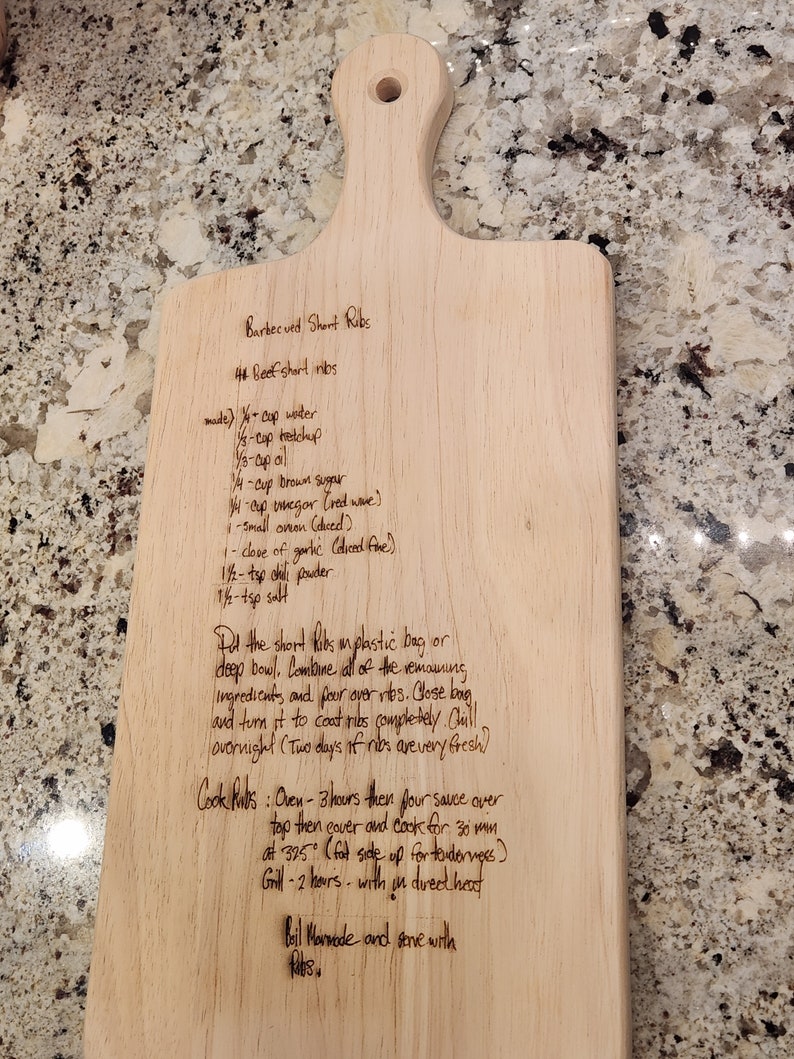 Barbecued Short Ribs
4# Beef short ribs
made) 1/4 + cup water
1/3 - cup ketchup
1/3 - cup oil
1/4 - cup brown sugar
1/4 - cup vinegar (red wine)
1 - small onion (diced)
1 - clove of garlic (diced fine)
1 1/2 - tsp chili powder
1 1/2 - tsp salt
Put the short Ribs in plastic bag or
deep bowl. Combine all of the remaining
ingredients and pour over ribs. Close bag
and turn it to coat ribs completely. Chill
overnight (Two days if ribs are very fresh)
Cook Ribs : Oven - 3 hours then pour sauce over
top then cover and cook for 30 min
at 325° (fat side up for tenderness)
Grill - 2 hours - with in direct heat
Boil Marinade and serve with
Ribs.